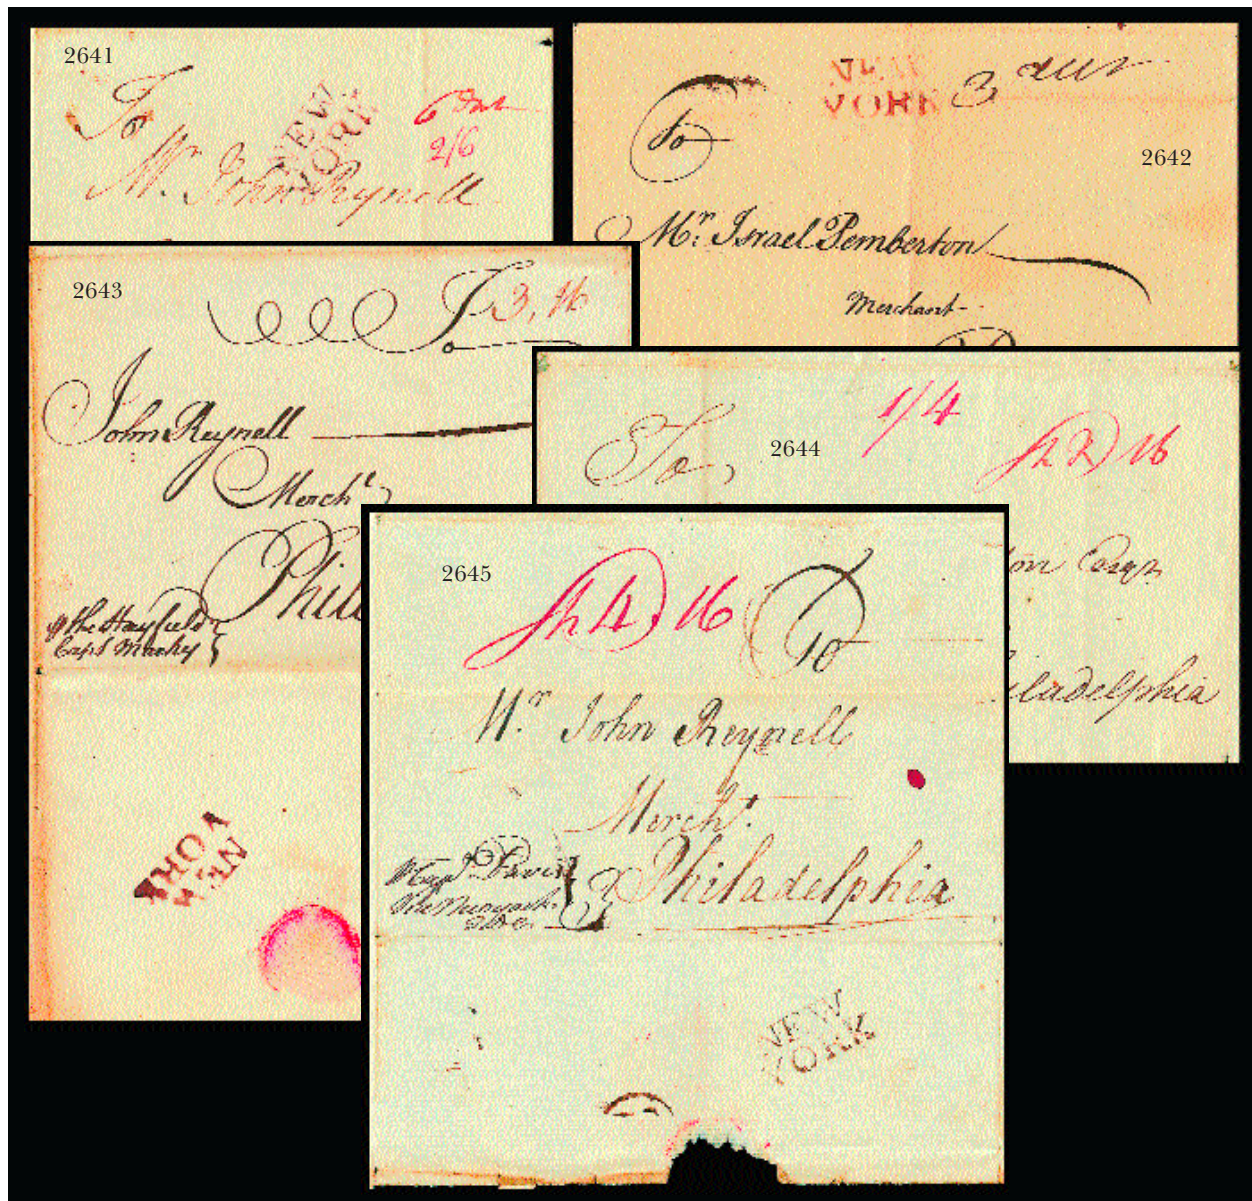 2641
To
NEW
YORK
6 dwt
2/6
Mr. John Reynell
NEW
YORK
3 dwt
To
2642
Mr: Israel Pemberton
Merchant
2643
3, 16
John Reynell
Mercht
Phil
the Hayfield
Capt Macky
NEW
YORK
1/4
To
2644
2) 16
on Esqr
iladelphia
2645
Sh 4) 16
To
Mr John Reynell
Mercht.
Philadelphia
NEW
YORK